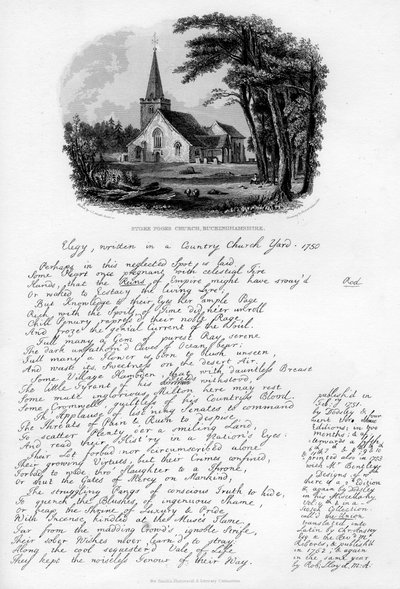 STOKE POGES CHURCH, BUCKINGHAMSHIRE.
Elegy, written in a Country Church Yard. 1750
Perhaps in this neglected Spot is laid
Some Heart once pregnant with celestial Fire
Hands, that the Reins of Empire might have sway'd Rod
Or waked to Ecstacy the living Lyre,
But Knowledge to their Eyes her ample Page
Rich with the Spoils of Time did ne'er unroll
Chill Penury repress'd their noble Rage,
And froze the genial Current of the Soul.
Full many a Gem of purest Ray serene
The dark unfathom'd Caves of Ocean bear:
Full many a Flower is born to blush unseen,
And waste its Sweetness on the desert Air.
Some Village Hambden that with dauntless Breast
The little Tyrant of his withstood,
Some mute inglorious Milton here may rest
Some Cromwell, guiltless of his Country's Blood.
Th' Applause of list'ning Senates to command
The Threats of Pain & Ruin to despise,
To scatter Plenty o'er a smiling Land,
And read their Hist'ry in a Nation's Eyes:
Their Lot forbad: nor circumscribed alone
Their growing Virtues, but their Crimes confined,
Forbad to wade thro' Slaughter to a Throne,
Or shut the Gates of Mercy on Mankind,
The struggling Pangs of conscious Truth to hide,
To quench the Blushes of ingenuous Shame,
Or heap the Shrine of Luxury & Pride
With Incense, kindled at the Muse's Flame.
Far from the madding Crowd's ignoble Strife,
Their sober Wishes never learn'd to stray:
Along the cool sequester'd Vale of Life
They kept the noiseless Tenour of their Way.
publish'd in
Feb:ry 1751.
by Dodsley &
went thro' four
Editions; in two
months; &
printed also in 1753
with Mr Bentley's
Designs, of which
there is a 2d Edition
& again by Dodsley
in his Miscellany,
Vol:
Scotch Collection
call'd the Union.
translated into
Latin by Chr: Anstey
Esq, & the Revd Mr
Roberts, & publish'd
in 1762; & again
in the same year
by Rob: Lloyd, M:A: